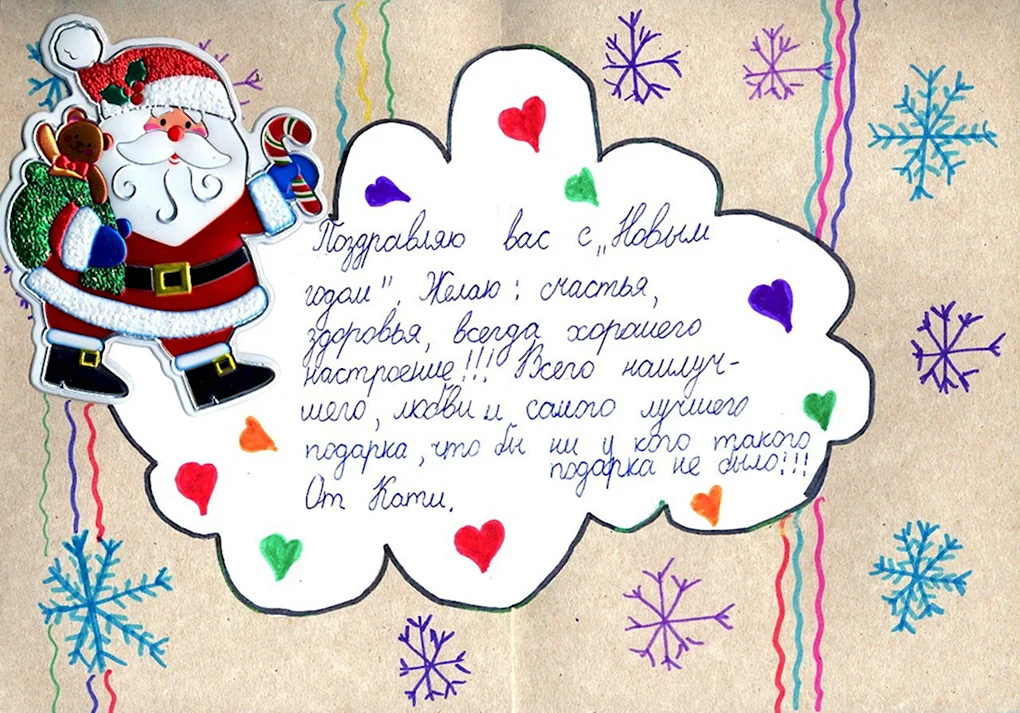 Поздравляю вас с „Новым
годом". Желаю: счастья,
здоровья, всегда хорошего
настроение!!! Всего наилуч-
шего, любви и самого лучшего
подарка, что бы ни у кого такого
подарка не было!!!
От Кати.